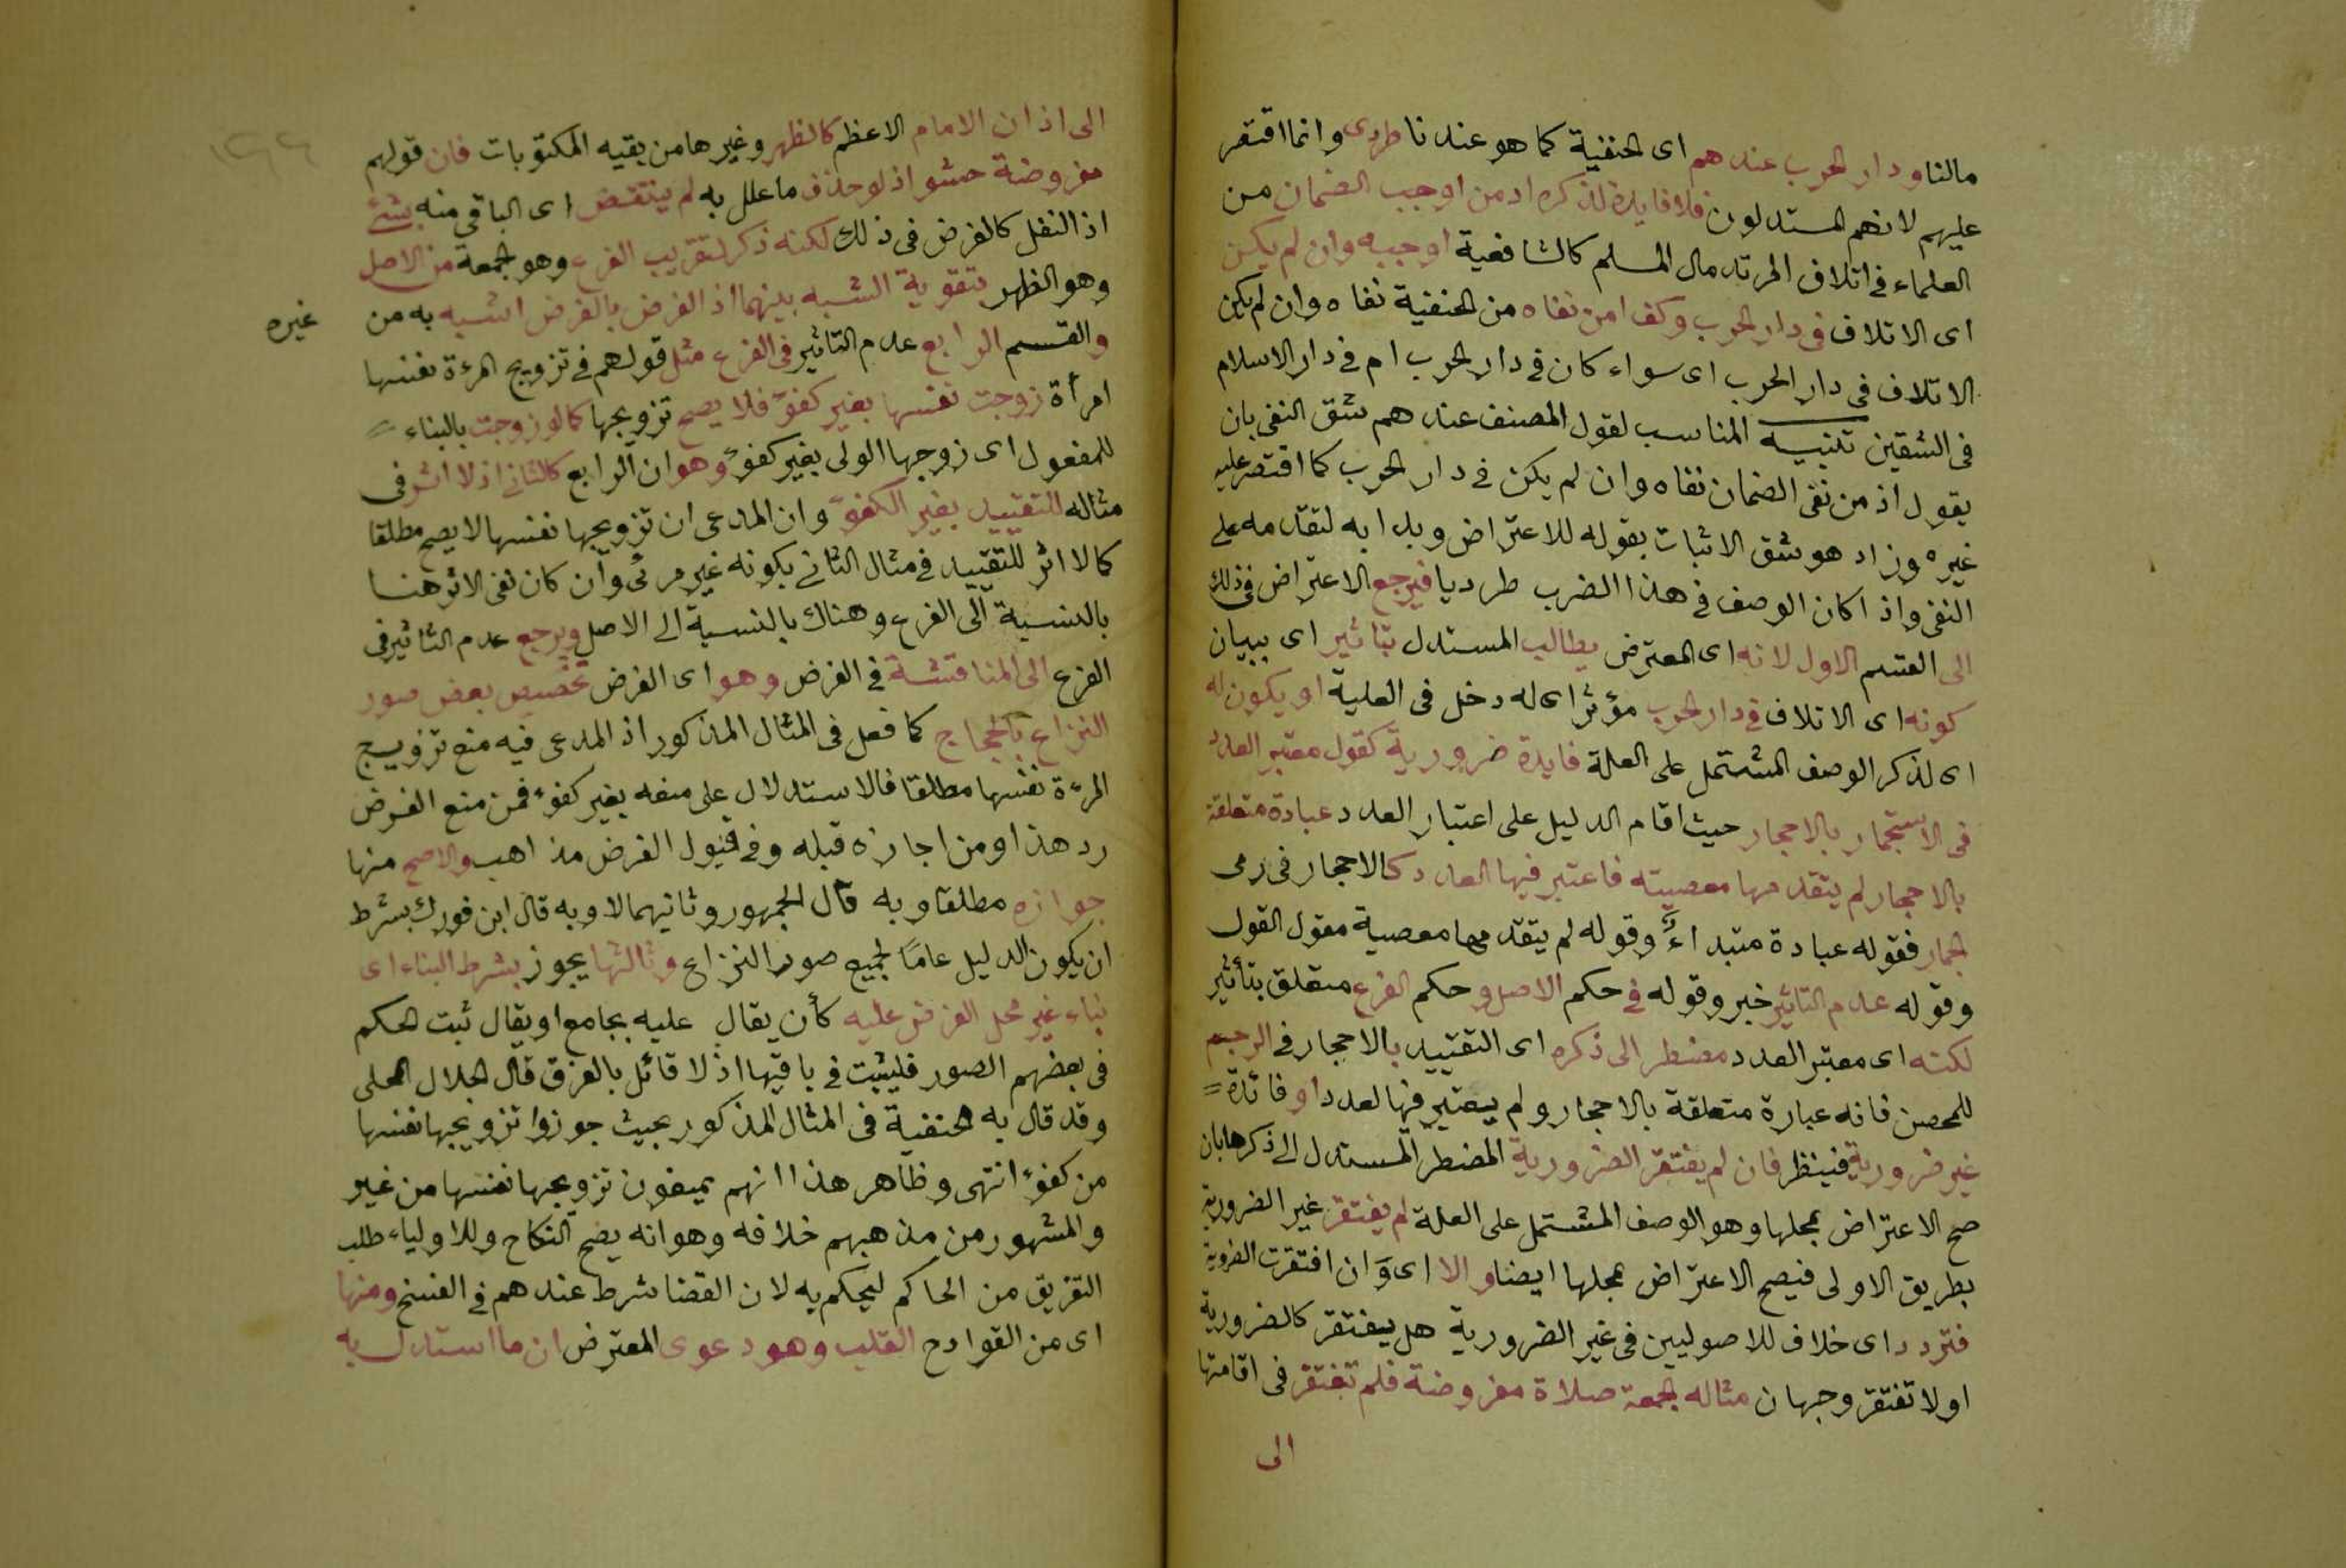 مالنا ودار الحرب عندهم اى الحنفية كما هو عندنا طردى وانما اقتصر
عليهم لانهم المستدلون فلا فايدة لذكره اذ من اوجب الضمان من
العلماء فى اتلاف المرتد مال المسلم كالشافعية اوجبه وان لم يكن
اى الاتلاف فى دار الحرب وكذا من نفاه من الحنفية نفاه وان لم يكن
الاتلاف فى دار الحرب اى سواء كان فى دار الحرب ام فى دار الاسلام
فى الشقين تنبيه المناسب لقول المصنف عندهم شق النفى بان
يقول اذ من نفى الضمان نفاه وان لم يكن فى دار الحرب كما اقتصر عليه
غيره وزاد هو شق الاثبات بقوله للاعتراض وبدا به لتقدمه على
النفى واذا كان الوصف فى هذا الضرب طرديا فيرجع الاعتراض فى ذلك
الى القسم الاول لانه اى المعترض يطالب المستدل بتاثير اى ببيان
كونه اى الاتلاف فى دار الحرب مؤثرا اى له دخل فى العلية او يكون له
اى لذكر الوصف المشتمل على العلة فايدة ضرورية كقول معتبر العدد
فى الاستجمار بالاحجار حيث اقام الدليل على اعتبار العدد عبادة متعلقة
بالاحجار لم يتقدمها معصيته فاعتبر فيها العدد كالاحجار فى رمى
الجمار فقوله عبادة مبتداءً وقوله لم يتقدمها معصية مقول القول
وقوله عدم التاثير خبر وقوله فى حكم الاصل وحكم الفرع متعلق بتأثير
لكنه اى معتبر العدد مضطر الى ذكره اى التقييد بالاحجار فى الرجم
للمحصن فانه عبارة متعلقة بالاحجار ولم يعتبر فيها لعدد او فائدة =
غير ضرورية فينظر فان لم يفتقر الضرورية المضطر المستدل الى ذكرها بان
صح الاعتراض بمحلها وهو الوصف المشتمل على العلة لم يفتقر غير الضرورية
بطريق الاولى فيصح الاعتراض بمحلها ايضا والا اى وان افتقرت الضروية
فتردد اى خلاف للاصوليين فى غير الضرورية هل يفتقر كالضرورية
اولا تفتقر وجهان مثاله الجمعة صلاة مفروضة فلم تفتقر فى اقامتها
الى
الى اذان الامام الاعظم كالظهر وغيرها من بقيه المكتوبات فان قولهم
مفروضة حشو اذ لو حذف ما علل به لم ينتقض اى الباقى منه بشئ
اذ النفل كالفرض فى ذلك لكنه ذكر لتقريب الفرع وهو الجمعة من الاصل
وهو الظهر بتقوية الشبه بينهما اذ الفرض بالفرض اشبه به من غيره
والقسم الرابع عدم التاثير فى الفرع مثل قولهم فى تزويج المرءة نفسها
امرأة زوجت نفسها بغير كفوء فلا يصح تزويجها كما لو زوجت بالبناء =
للمفعول اى زوجها الولى بغير كفوء وهو ان الرابع كالثانى اذ لا اثر فى
مثاله للتقييد بغير الكفوء وان المدعى ان تزويجها نفسها لا يصح مطلقا
كما لا اثر للتقييد فى مثال الثانى بكونه غير مرئى وان كان نفى الاثر هنا
بالنسبة الى الفرع وهناك بالنسبة الى الاصل ويرجع عدم التاثير فى
الفرع الى المناقشة فى الفرض وهو اى الفرض تخصيص بعض صور
النزاع بالحجاج كما فعل فى المثال المذكور اذ المدعى فيه منع تزويج
المرءة نفسها مطلقا فالاستدلال على منعه بغير كفوء فمن منع الفرض
رد هذا ومن اجازه قبله وفى قبول الفرض مذاهب والاصح منها
جوازه مطلقا وبه قال الجمهور وثانيهما لا وبه قال ابن فورك بشرط
ان يكون الدليل عامًا لجميع صور النزاع وثالثها يجوز بشرط البناء اى
بناء غير محل الفرض عليه كأن يقال عليه بجامع او يقال ثبت الحكم
فى بعضهم الصور فليثبت فى باقيها اذ لا قائل بالفرق قال الجلال المحلى
وقد قال به الحنفية فى المثال المذكور بحيث جوزوا تزويجها نفسها
من كفوء انتهى وظاهر هذا انهم يمنعون تزويجها نفسها من غير
والمشهور من مذهبهم خلافه وهو انه يصح النكاح وللاولياء طلب
التفريق من الحاكم ليحكم به لان القضا شرط عندهم فى الفسخ ومنها
اى من القوادح القلب وهو دعوى المعترض ان ما استدل به